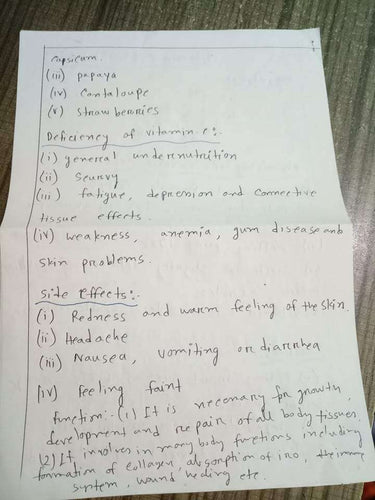 Capsicum.
(iii) papaya
(iv) Cantaloupe
(v) Strawberries
Deficiency of vitamin-c:-
(i) general undernutrition
(ii) Scurvy
(iii) fatigue, depression and Connective
tissue effects.
(iv) weakness, anemia, gum disease and
skin problems.
Side effects:-
(i) Redness and warm feeling of the skin.
(ii) Headache
(iii) Nausea, vomiting or diarrhea
(iv) feeling faint
function:- (1) It is necessary for growth,
development and repair of all body tissues
(2) It involves in many body functions including
formation of collagen, absorption of iro, the immune
system, wound healing etc.